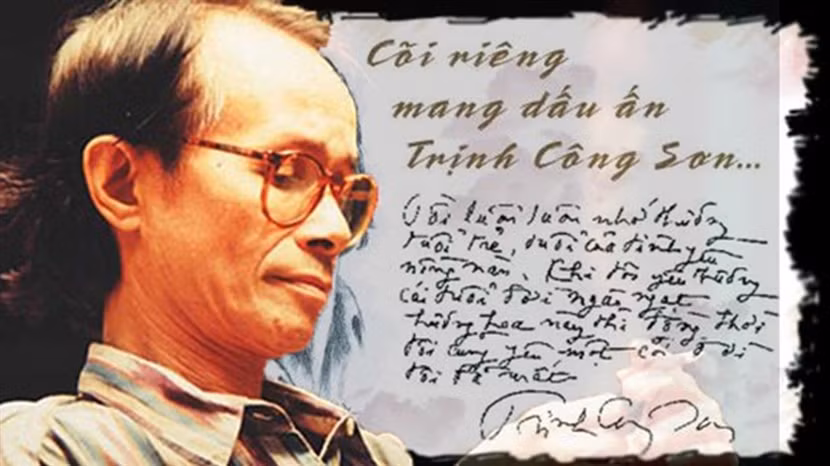 Cõi riêng
mang dấu ấn
Trịnh Công Sơn...
Tôi luôn luôn nhớ thương
tuổi trẻ, tuổi của tình yêu
nồng nàn. Khi tôi yêu thương
cái tuổi đời ngào ngạt
hương hoa này thì đồng thời
tôi cũng yêu một cõi đời
tôi đã mất
Trịnh Công Sơn